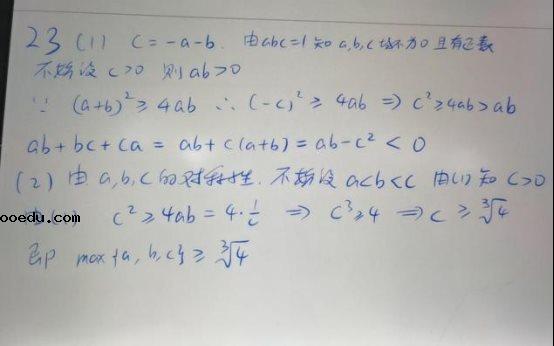 23 (1) c=-a-b. 由abc=1知a,b,c均不为0且有正数
不妨设 c>0 则ab>0
∵ (a+b)²≥4ab ∴(-c)²≥4ab ⇒ c²≥4ab>ab
ab+bc+ca = ab+c(a+b) = ab-c² < 0
(2) 由a,b,c的对称性,不妨设a<b<c 由(1)知 c>0
ooedu.com c²≥4ab=4·1/c ⇒ c³≥4 ⇒ c≥∛4
即 max{a,b,c}≥∛4